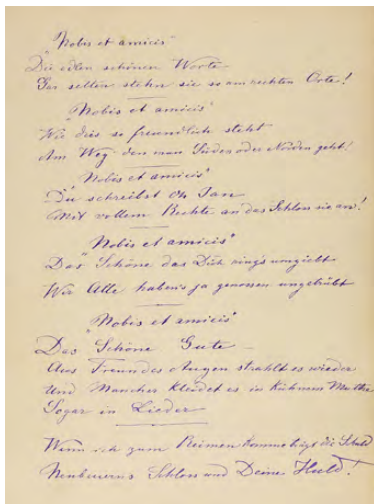 "Nobis et amicis"
Die edlen schönen Worte
Gar selten stehn sie so am rechten Orte!
"Nobis et amicis"
Wie dies so freundlich steht
Am Weg den man Süden oder Norden geht!
"Nobis et amicis"
Du schreibst Oh Jan
Mit vollem Rechte an das Schloss sie an!
"Nobis et amicis"
Das Schöne das Dich rings umgiebt
Wir Alle haben's ja genossen ungetrübt
"Nobis et amicis"
Das Schöne Gute
Aus Freundes Augen strahlt es wieder
Und Mancher kleidet es in
Sogar in Lieder
Wenn ich zum Reimen komme trägt die Schuld
Neubeuerns Schloss und Deine Huld!